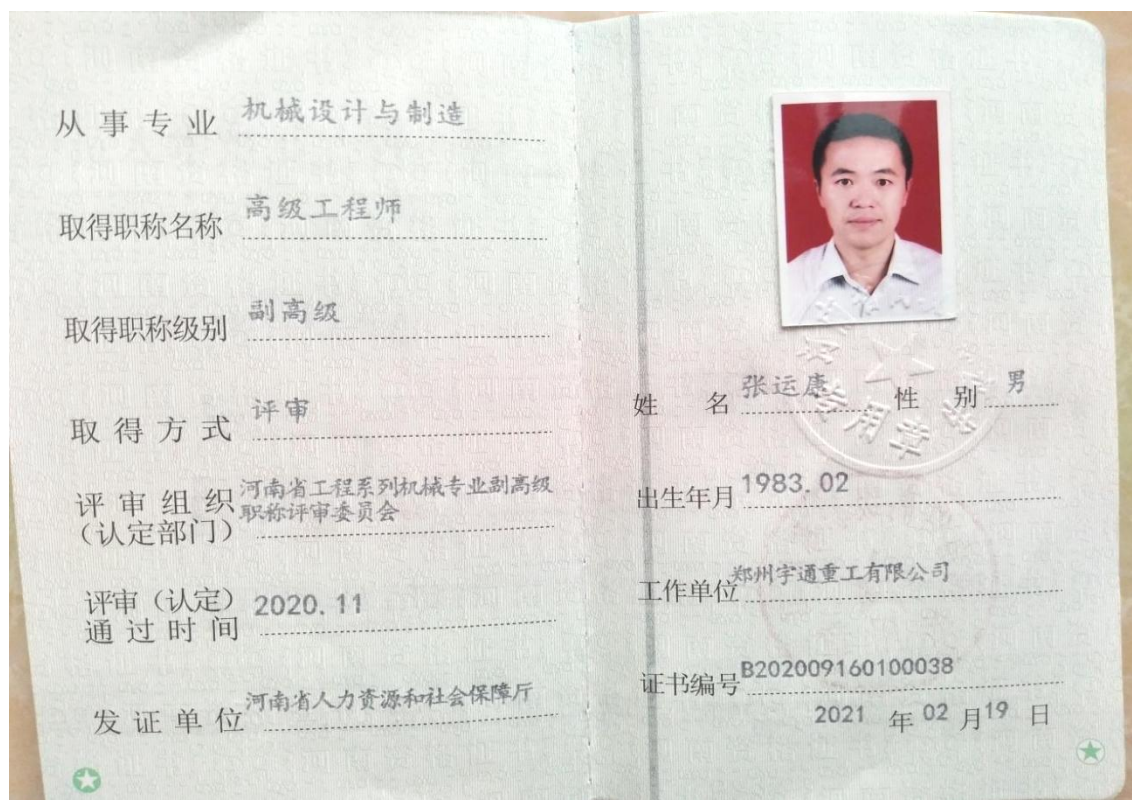 从事专业 机械设计与制造
取得职称名称 高级工程师
取得职称级别 副高级
取得方式 评审
评审组织 河南省工程系列机械专业副高级
(认定部门) 职称评审委员会
评审(认定) 2020.11
通过时间
发证单位 河南省人力资源和社会保障厅
姓名 张运康 性别 男
出生年月 1983.02
工作单位 郑州宇通重工有限公司
证书编号 B202009160100038
2021 年 02 月 19 日
专用章